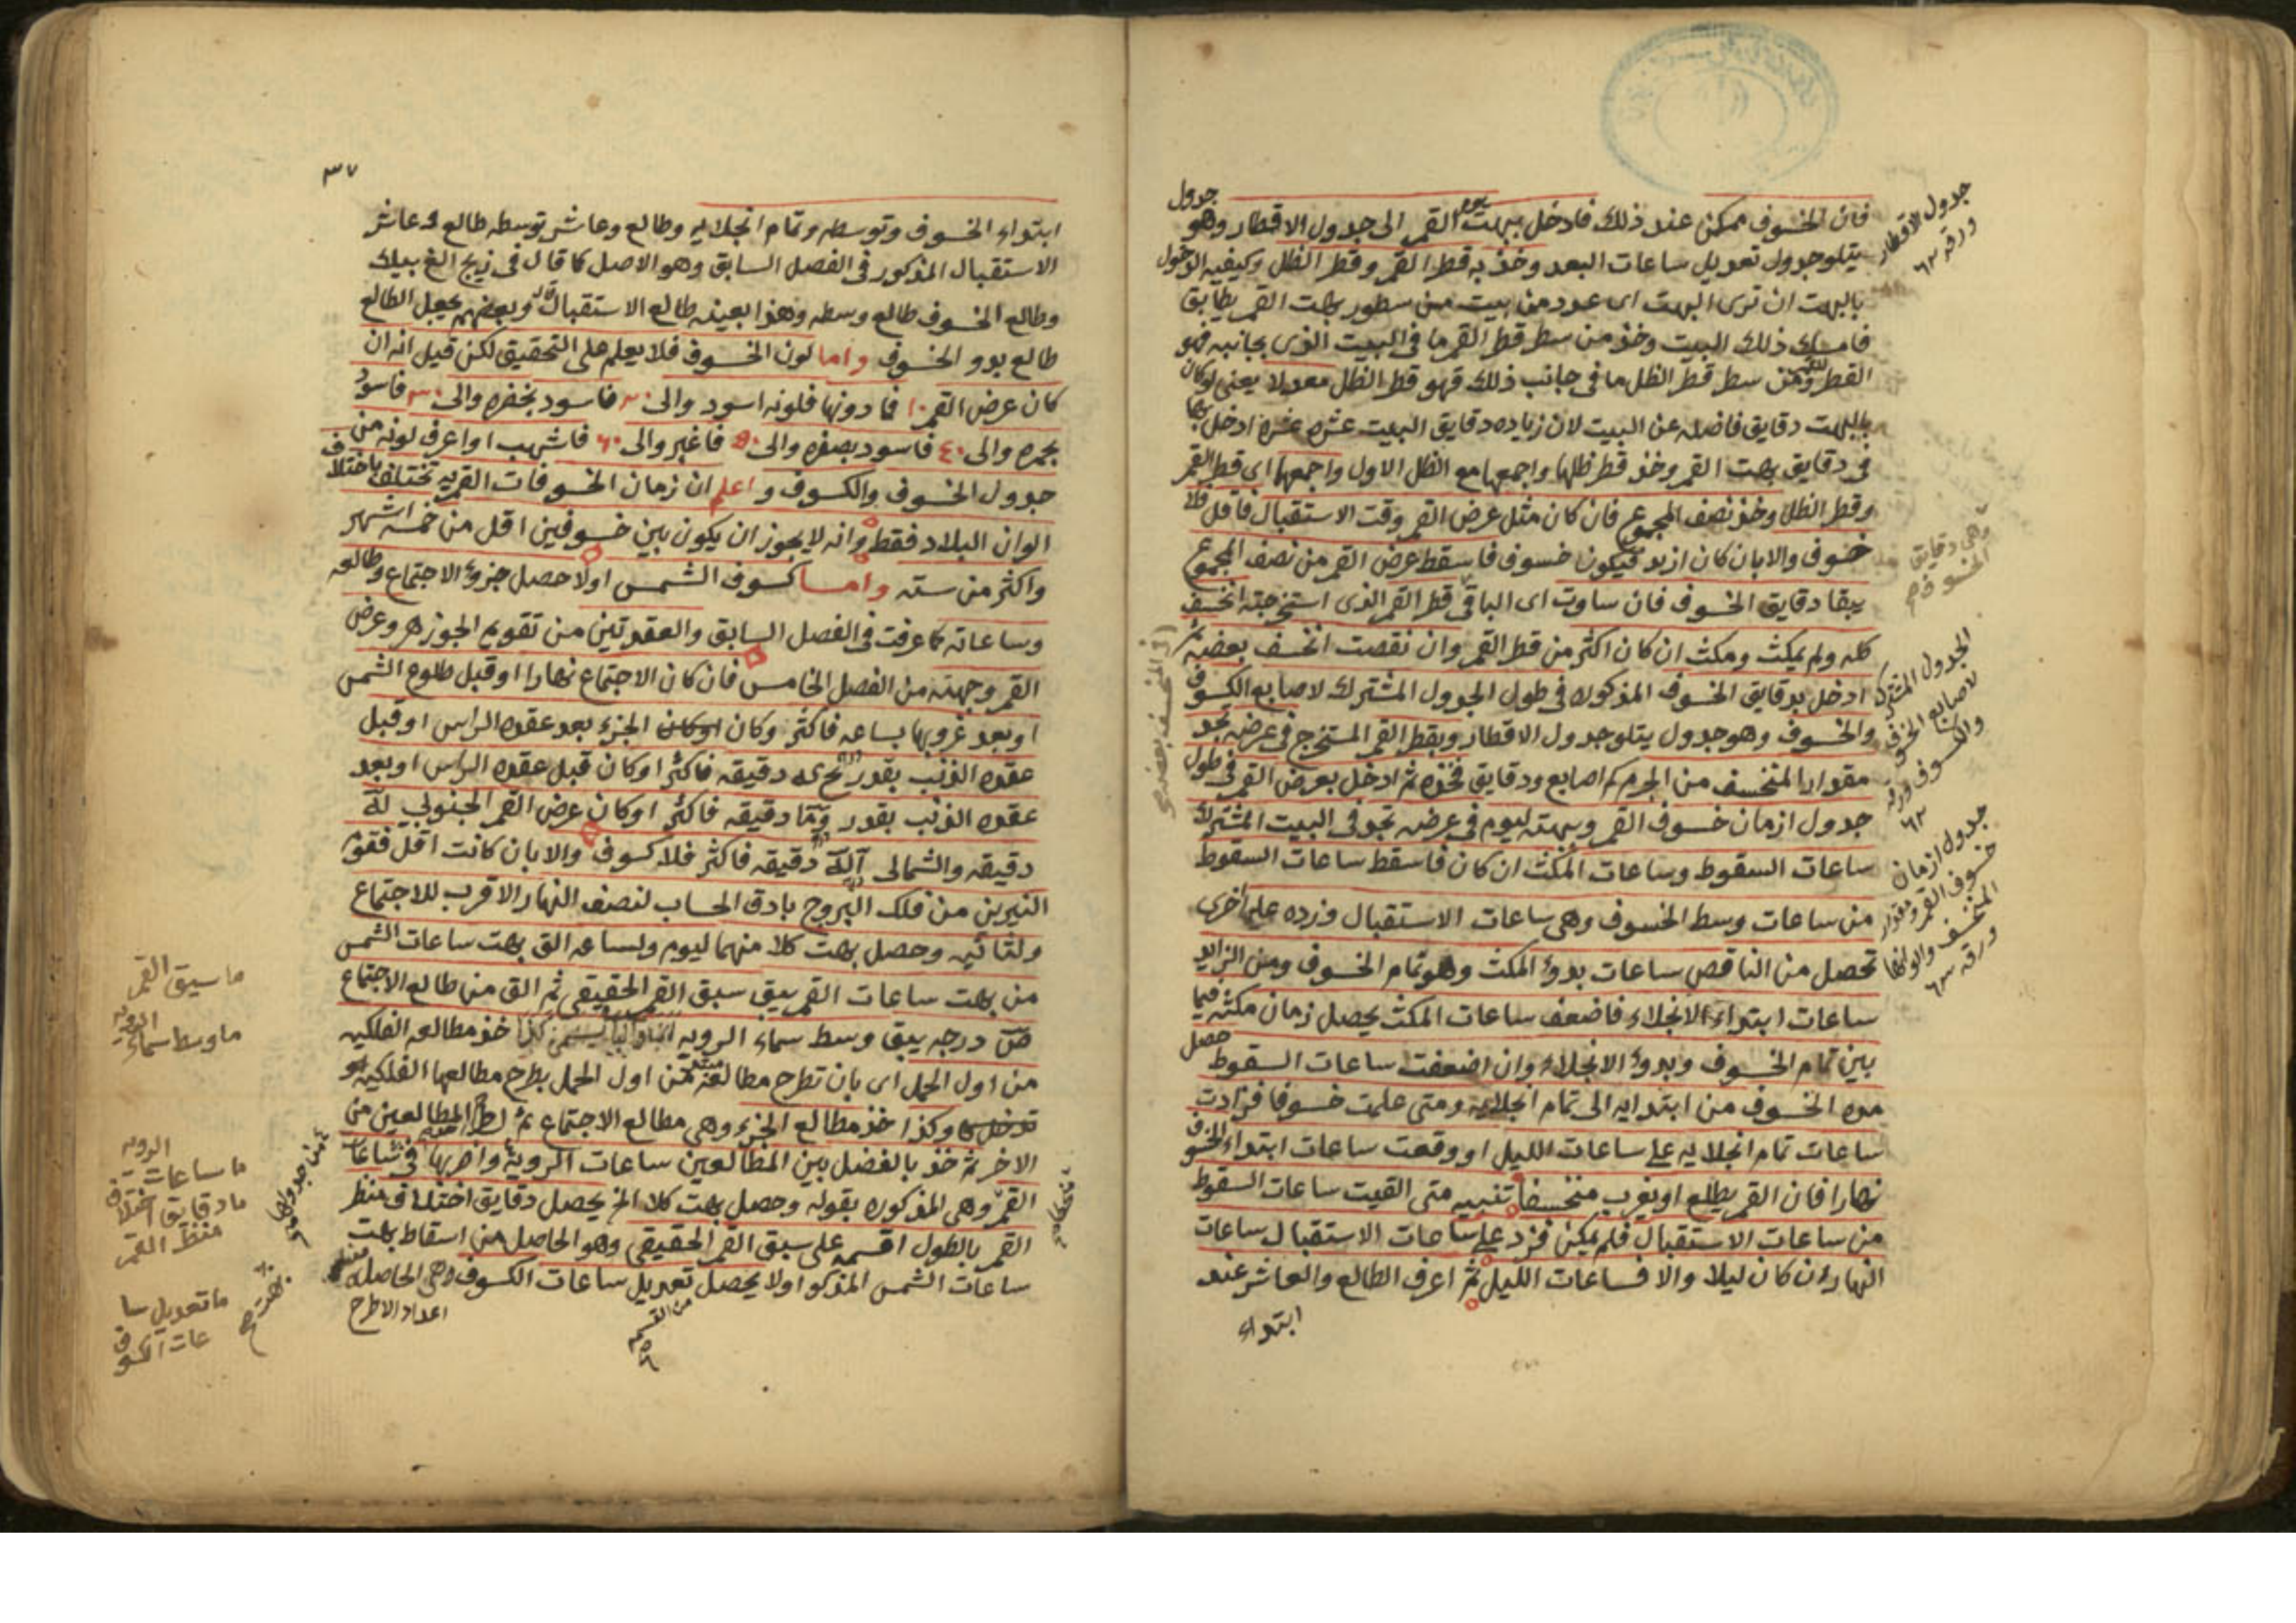 فان الخسوف ممكن عند ذلك فادخل ببهت يوم القمر الى جدول الاقطار وهو جدول
يتلو جدول تعديل ساعات البعد وخذ به قطر القمر وقطر الظل وكيفيه الدخول
بالبهت ان ترى البهت اى عدد من بيت من سطور بهت القمر يطابق
فامسك ذلك البيت وخذ من سطر قطر القمر ما فى البيت الذى بجانبه فهو
القطر للقمر ومن سطر قطر الظل ما فى جانب ذلك فهو قطر الظل معدلا يعنى لو كان
بالبهت دقايق فاضله عن البيت لان زياده دقايق البيت عشره عشره ادخل بها
فى دقايق بهت القمر وخذ قطر ظلها واجمعها مع الظل الاول واجمعها اى قطر القمر
وقطر الظل وخذ نصف المجموع فان كان مثل عرض القمر وقت الاستقبال فاقل فلا
خسوف والا بان كان ازيد فيكون خسوف فاسقط عرض القمر من نصف المجموع
يبقا دقايق الخسوف فان ساوت اى الباقى قطر القمر الذى استخرجته انخسف
كله ولم يمكث ومكث ان كان اكثر من قطر القمر وان نقصت انخسف بعضه ثم
ادخل بدقايق الخسوف المذكوره فى طول الجدول المشترك لاصابع الكسوف
والخسوف وهو جدول يتلو جدول الاقطار وبقطر القمر المستخرج فى عرضه تجد
مقدار المنخسف من الجرم كم اصابع ودقايق فخذه ثم ادخل بعرض القمر فى طول
جدول ازمان خسوف القمر وببهته ليوم فى عرضه تجد فى البيت المشترك
ساعات السقوط وساعات المكث ان كان فاسقط ساعات السقوط
من ساعات وسط الخسوف وهى ساعات الاستقبال وزده على اخرى
تحصل من الناقص ساعات بدؤ المكث وهو تمام الخسوف ومن الزايد
ساعات ابتداء الانجلاء فاضعف ساعات المكث يحصل زمان مكثه فيما
بين تمام الخسوف وبدؤ الانجلاء وان اضعفت ساعات السقوط حصل
مده الخسوف من ابتدايه الى تمام انجلايه ومتى علمت خسوفا فزادت
ساعات تمام انجلايه على ساعات الليل او وقعت ساعات ابتداء الخسوف
نهارا فان القمر يطلع او يغرب منخسفا تنبيه متى القيت ساعات السقوط
من ساعات الاستقبال فلم يمكن فزد على ساعات الاستقبال ساعات
النهار ان كان ليلا والا فساعات الليل ثم اعرف الطالع والعاشر عند
ابتداء
جدول الاقطار
ورقه ٦٢
وهى دقايق
الخسوف
الجدول المشترك
لاصابع الخسوف
والكسوف ورقه
٦٢
جدول ازمان
خسوف القمر ومقدار
المنخسف
ورقه ٦٣
٣٧
ابتداء الخسوف وتوسطه وتمام انجلايه وطالع وعاشر توسطه طالع وعاشر
الاستقبال المذكور فى الفصل السابق وهو الاصل كما قال فى زيج الغ بيك
وطالع الخسوف طالع وسطه وهذا بعينه طالع الاستقبال وبعضهم يجعل الطالع
طالع بدو الخسوف واما لون الخسوف فلا يعلم على التحقيق لكن قيل انه ان
كان عرض القمر ١٠ فما دونها فلونه اسود والى ٢٠ فاسود بخضره والى ٣٠ فاسود
بحمره والى ٤٠ فاسود بصفره والى ٥٠ فاغبر والى ٦٠ فاشهب او اعرف لونه من
جدول الخسوف والكسوف واعلم ان زمان الخسوفات القمريه تختلف باختلاف
الوان البلاد فقط وانه لا يجوز ان يكون بين خسوفين اقل من خمسه اشهر
واكثر من سته واما كسوف الشمس اولا حصل جزؤ الاجتماع وطالعه
وساعاته كما عرفت فى الفصل السابق والعقدتين من تقويم الجوزهر وعرض
القمر وجهته من الفصل الخامس فان كان الاجتماع نهارا او قبل طلوع الشمس
او بعد غروبها بساعه فاكثر وكان اوكان الجزء بعد عقده الراس او قبل
عقده الذنب بقدر دقيقه فاكثر او كان قبل عقده الراس او بعد
عقده الذنب بقدر دقيقه فاكثر او كان عرض القمر الجنوبى
دقيقه والشمالى دقيقه فاكثر فلا كسوف والا بان كانت اقل فقوم
النيرين من فلك البروج بادق الحساب لنصف النهار الاقرب للاجتماع
ولثانيه وحصل بهت كلا منهما ليوم ولساعه الق بهت ساعات الشمس
من بهت ساعات القمر يبق سبق القمر الحقيقى ثم الق من طالع الاجتماع
ص درجه يبق وسط سماء الرويه خذ مطالعه الفلكيه
من اول الحمل اى بان تطرح مطالعه من اول الحمل بطرح مطالعها الفلكيه
وكذا خذ مطالع الجزء وهى مطالع الاجتماع ثم اطرح المطالعين من
الاخر ثم خذ بالفضل بين المطالعين ساعات الرويه واضربها فى ساعات
القمر وهى المذكوره بقوله وحصل بهت كلا الخ يحصل دقايق اختلاف منظر
القمر بالطول اقسمه على سبق القمر الحقيقى وهو الحاصل من اسقاط بهت
ساعات الشمس المذكور اولا يحصل تعديل ساعات الكسوف وهى الحاصله
من القسمه
اعداد الاطرح
ما سبق القمر
ما وسط سماء الرويه
ما ساعات الرويه
ما دقايق اختلاف
منظر القمر
ما تعديل سا
عات الكسوف